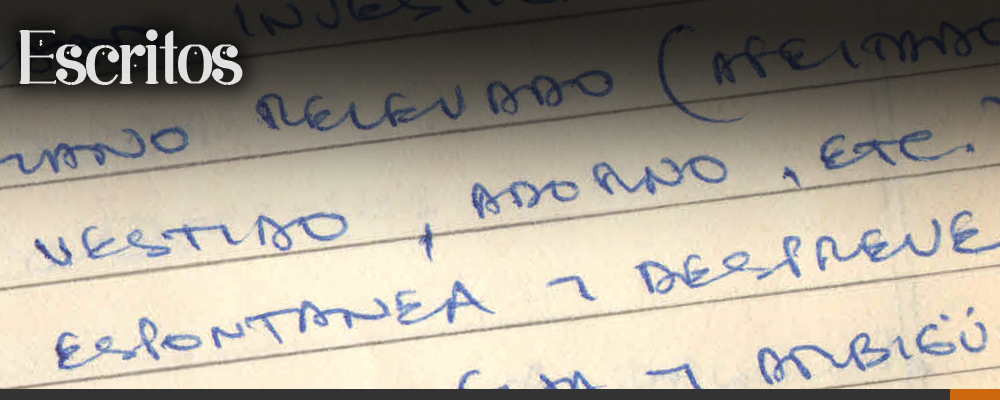 Escritos
PLANO RELEVADO (AFEITADO
VESTIDO, ADORNO, ETC.
ESPONTANEA Y DESPREVE
Y AMBIGÜ